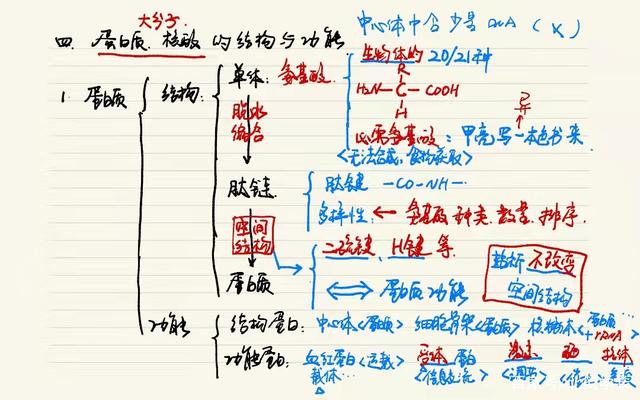 大分子
中心体中含少量 DNA (X)
四. 蛋白质、核酸的结构与功能.
生物体的 20/21种
单体: 氨基酸
R
1. 蛋白质
结构:
H₂N—C—COOH
H
脱水
缩合
异
必需氨基酸: 甲亮写一本色书来
<无法合成, 食物获取>
肽链
肽键 —CO—NH—
多样性: ← 氨基酸种类、数量、排序.
空间
结构
二硫键、H键等.
盐析不改变
空间结构
蛋白质
⟺ 蛋白质功能
功能
结构蛋白: 中心体<蛋白质> 细胞骨架<蛋白质> 核糖体<蛋白质+rRNA>
功能蛋白: 血红蛋白<运载> 受体蛋白 激素 酶 抗体
载体 <信息交流> <调节> 免疫